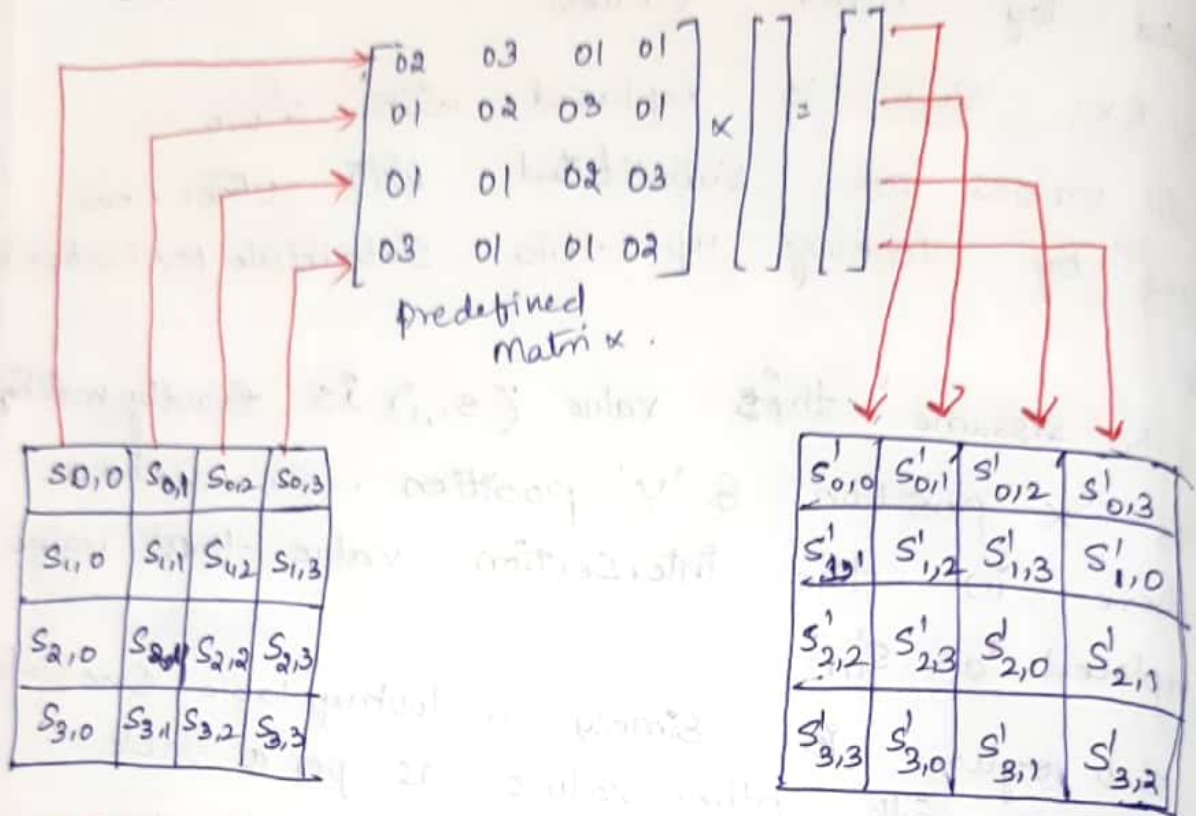 02 03 01 01
01 02 03 01 × [ ] = [ ]
01 01 02 03
03 01 01 02
Predefined
Matrix.
S0,0 S0,1 S0,2 S0,3
S1,0 S1,1 S1,2 S1,3
S2,0 S2,1 S2,2 S2,3
S3,0 S3,1 S3,2 S3,3
S'0,0 S'0,1 S'0,2 S'0,3
S'1,1 S'1,2 S'1,3 S'1,0
S'2,2 S'2,3 S'2,0 S'2,1
S'3,3 S'3,0 S'3,1 S'3,2